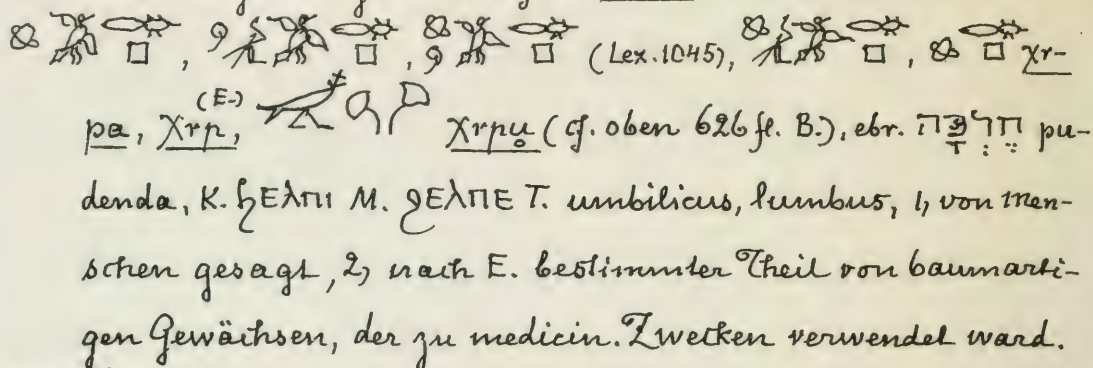 , , (Lex. 1045), , χr-
pa, χrp, (E.) χrpụ (cf. oben 626 fl. B.), ebr. חֶרְפָּה pu-
denda, K. ϧⲉⲗⲡⲓ M. ϩⲉⲗⲡⲉ T. umbilicus, lumbus, 1, von Men-
schen gesagt, 2, nach E. bestimmter Theil von baumarti-
gen Gewächsen, der zu medicin. Zwecken verwendet ward.